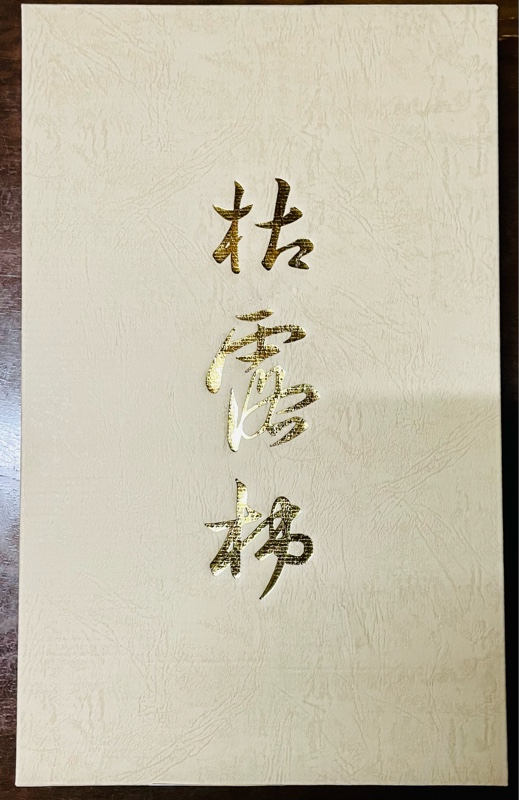 枯露柿